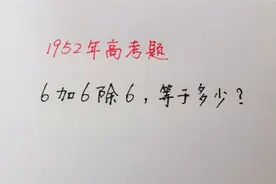 1952年高考题
6加6除6，等于多少？